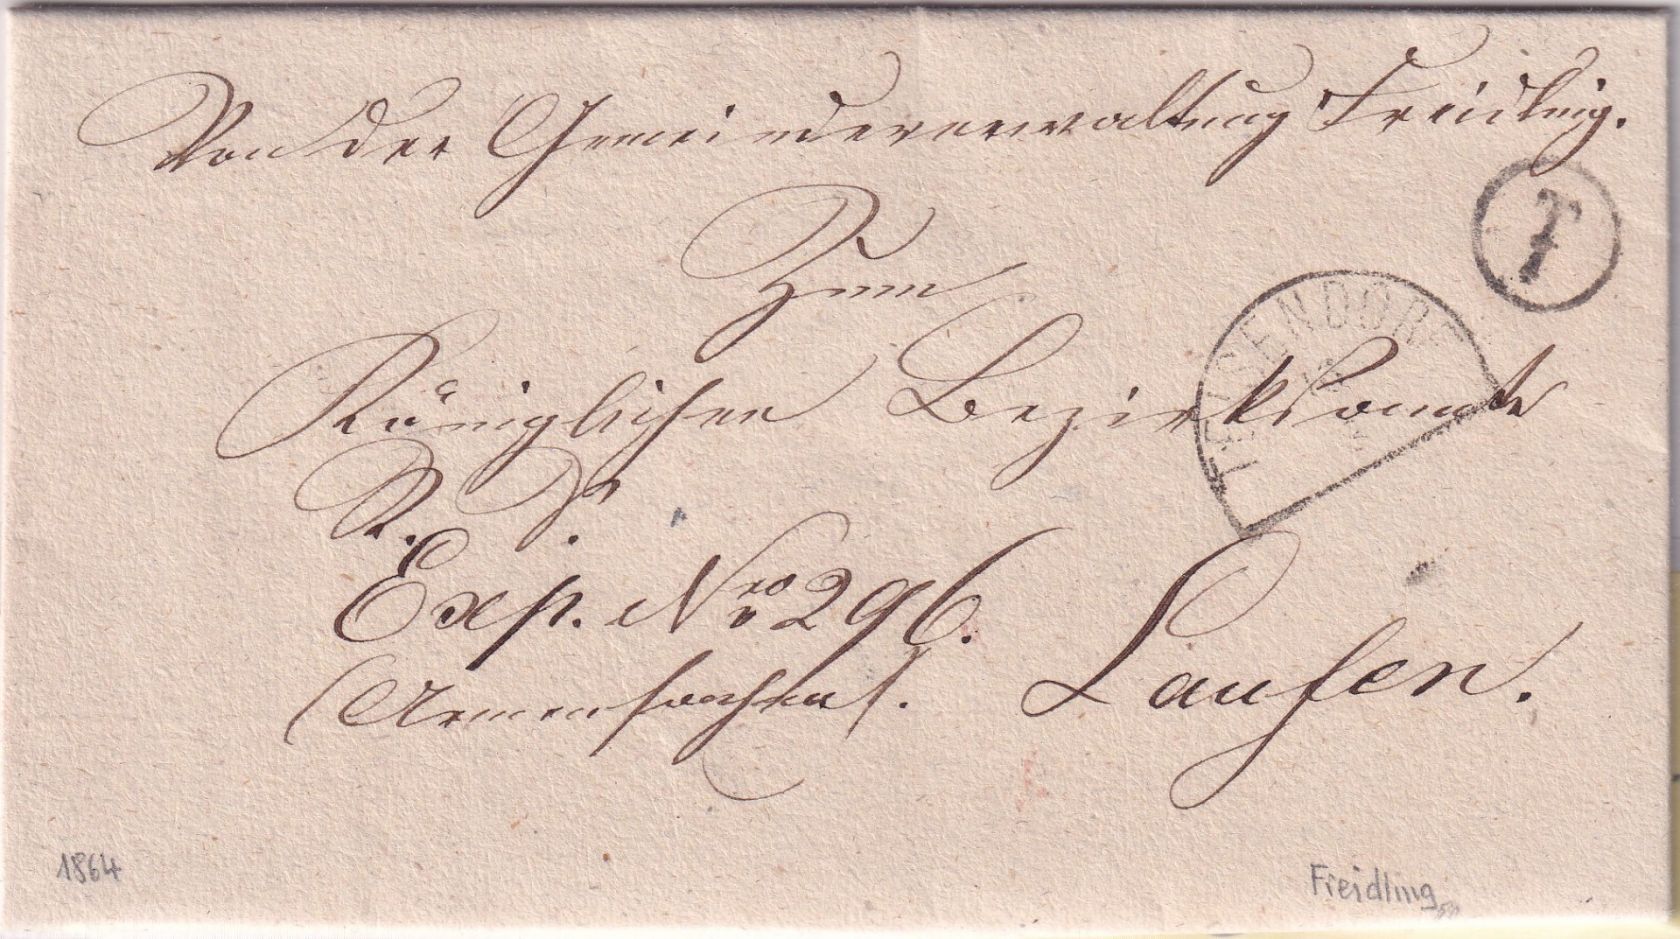 Von der Gemeindeverwaltung Freidling.
T
Zum
TEISENDORF
Königlichen Bezirksamte
R. S.
Exp. Nro 296.
Laufen.
(Armensachen).
1864
Freidling